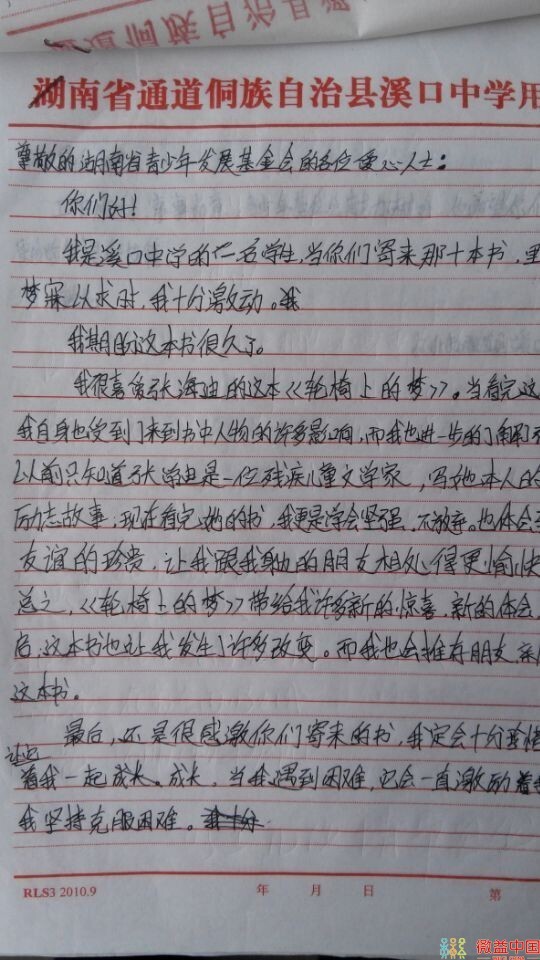 道侗族自治县溪
湖南省通道侗族自治县溪口中学用
尊敬的湖南省青少年发展基金会的各位爱心人士：
你们好！
我是溪口中学的一名学生，当你们寄来那十本书，里
梦寐以求时，我十分激动。我
我期盼这本书很久了。
我很喜爱张海迪的这本《轮椅上的梦》。当看完这
我自身也受到了来到书中人物的许多影响，而我也进一步的了解了
以前只知道张海迪是一位残疾儿童文学家，写她本人的
励志故事；现在看完她的书，我更是学会坚强、不放弃。也体会到
友谊的珍贵，让我跟我身边的朋友相处得更愉快
总之，《轮椅上的梦》带给我许多新的惊喜、新的体会，
后，这本书也让我发生了许多改变。而我也会推荐朋友、亲
这本书。
最后，还是很感激你们寄来的书，我定会十分珍惜
让它
着我一起成长。成长，当我遇到困难，它会一直激励着我
我坚持克服困难。
RLS3 2010.9 年 月 日 第
微益中国